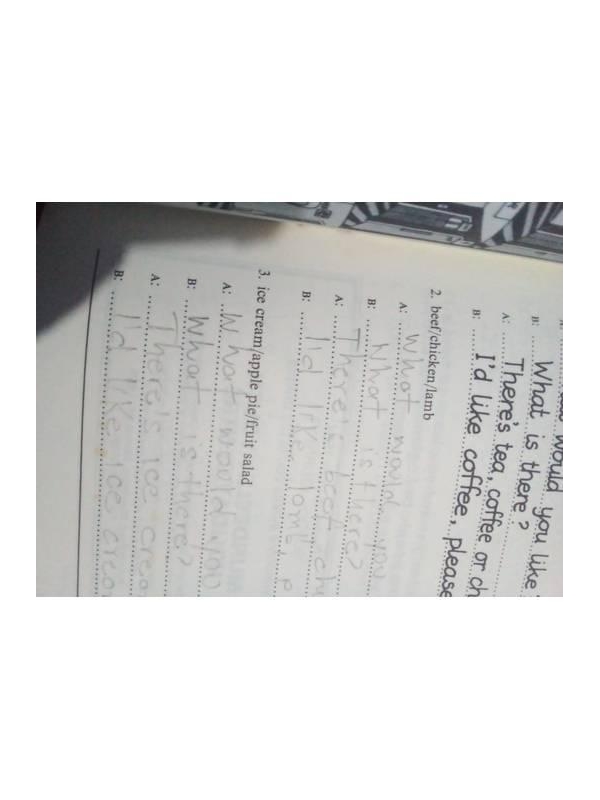 would you like
B: What is there?
A: There's tea, coffee or ch
B: I'd like coffee, please
2. beef/chicken/lamb
A: What would you
B: What is there?
A: There's beef, ch
B: I'd like lamb, p
3. ice cream/apple pie/fruit salad
A: What would you
B: What is there?
A: There's ice crea
B: I'd like ice crea